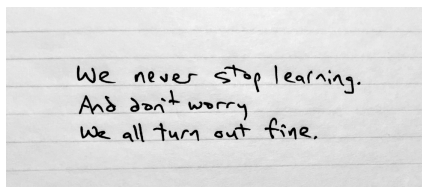 We never stop learning.
And don't worry
We all turn out fine.